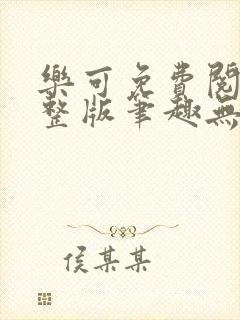 樂可免費閱
整版筆趣無
侯某某